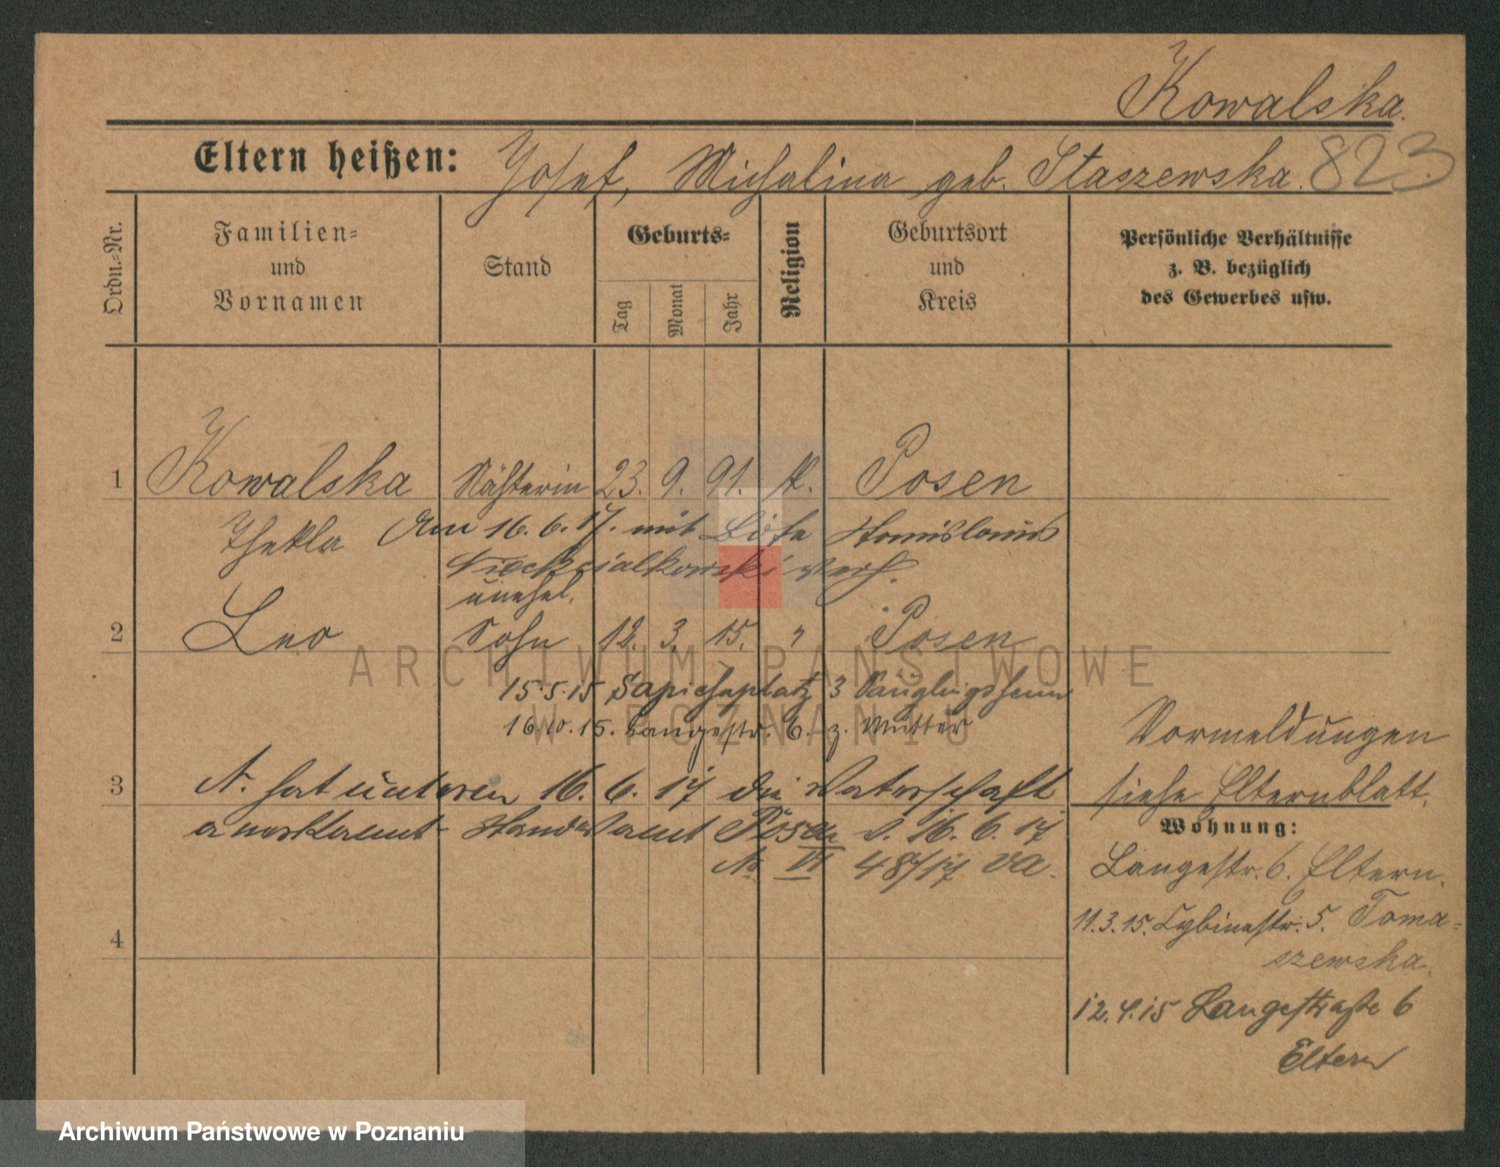 Kowalska.
Eltern heißen: Josef, Michalina geb. Staszewska. 823
Ordn.-Nr.
Familien-
und
Vornamen
Stand
Geburts-
Tag
Monat
Jahr
Religion
Geburtsort
und
Kreis
Persönliche Verhältnisse
z. B. bezüglich
des Gewerbes usw.
1 Kowalska Nähterin 23. 9. 91. k. Posen
Thekla Am 16.6.17. mit Stanislaus
verh.
unehel.
2 Leo Sohn 12. 3. 15. " Posen
15.5.15 Sapiehaplatz 3 Säuglingsheim
16.10.15. Langestr. 6. z. Mutter
3 N. hat unterm 16. 6. 17 die Vaterschaft
anerkannt Standesamt Posen v. 16. 6. 17
No VI 48/17 va.
4
Vormeldungen
siehe Elternblatt.
Wohnung:
Langestr. 6. Eltern.
11.3.15. Cybinastr. 5. Toma-
szewska.
12.4.15 Langestraße 6
Eltern
ARCHIWUM PAŃSTWOWE
W POZNANIU
Archiwum Państwowe w Poznaniu